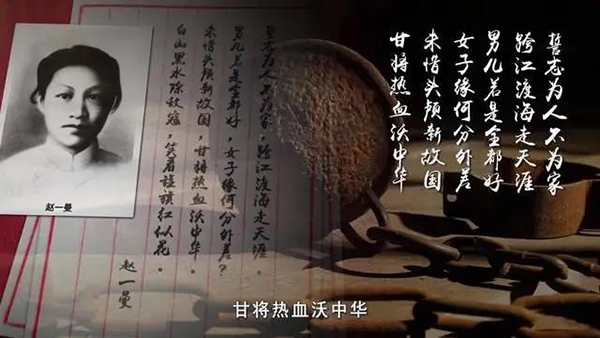 誓志为人不为家
跨江渡海走天涯
男儿若是全都好
女子缘何分外差
未惜头颅新故国
甘将热血沃中华
誓志为人不为家，跨江渡海走天涯。
男儿若是全都好，女子缘何分外差？
未惜头颅新故国，甘将热血沃中华。
白山黑水除敌寇，笑看旌旗红似花。
赵一曼
赵一曼
甘将热血沃中华